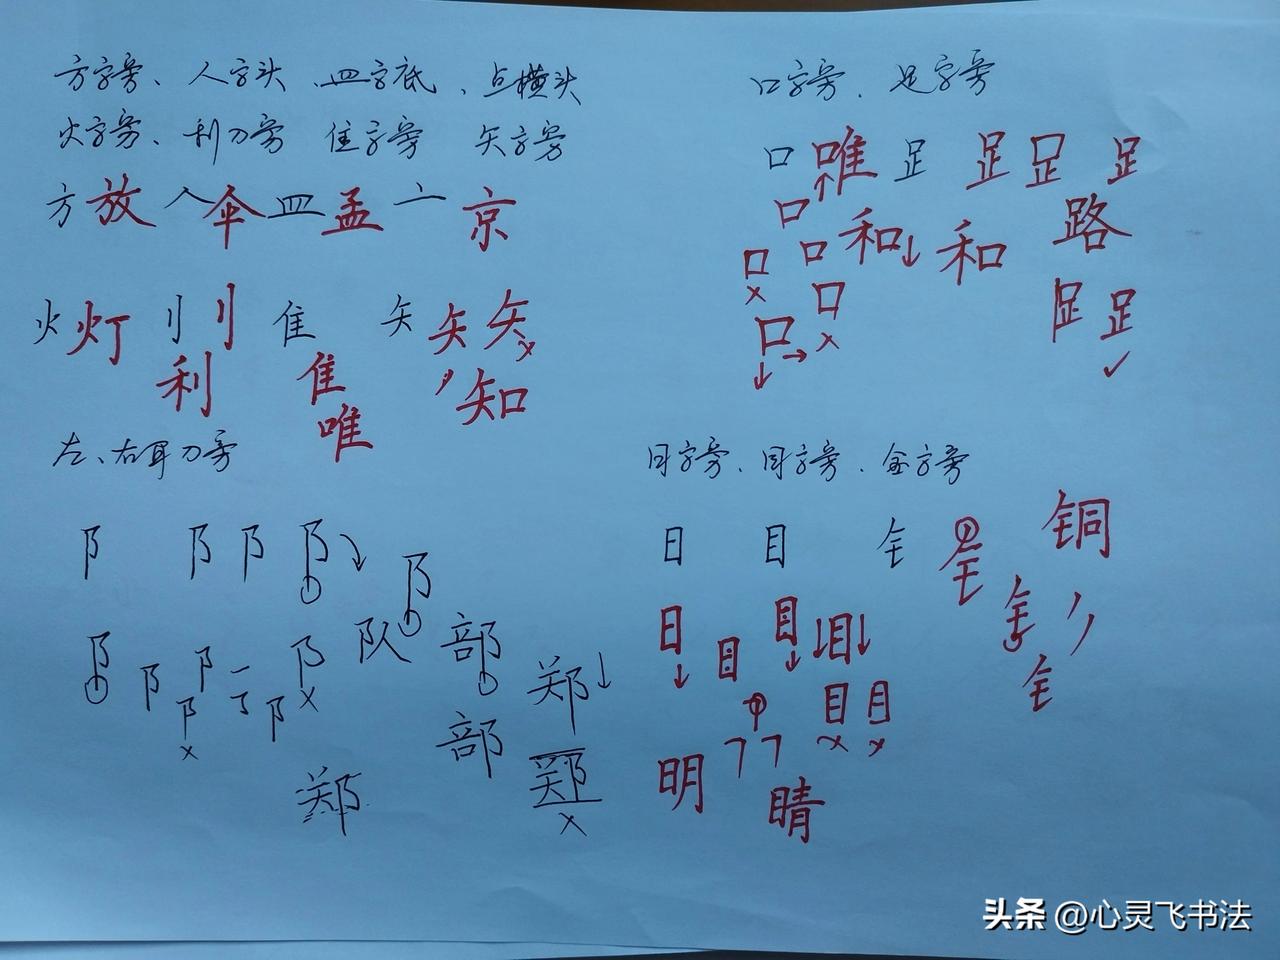 方字旁、人字头、皿字底、点横头
火字旁、利刀旁 隹字旁 矢字旁
方 放 人 伞 皿 孟 亠 京
火 灯 刂 刂 隹 矢 矢 矢
利 隹 知
唯
口字旁、足字旁
口 唯 足 足 足 足
口 口 和 和 路
口 口 足 足
口
左、右耳刀旁
阝 阝 阝 阝 阝
阝 阝 阝 阝 阝 阝 队 部 郑
部
郑 郑
日字旁、目字旁、金字旁
日 目 钅 钅 铜
日 目 目 目 钅
目 目 钅
明 睛
头条 @心灵飞书法